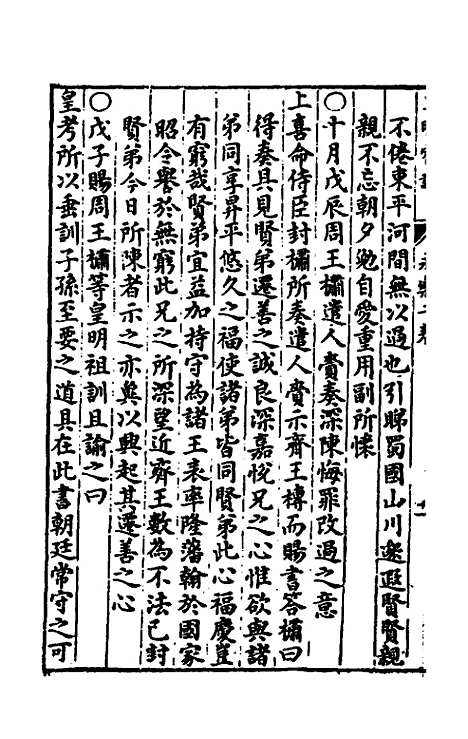 不倦東平河間無以過也引睇蜀國山川邈遐賢賢親
親不忘朝夕勉自愛重用副所懷
○十月戊辰周王橚遣人賫奏深陳悔罪改過之意
上喜命侍臣封橚所奏遣人賫示齊王榑而賜書答橚曰
得奏具見賢弟遷善之誠良深嘉悅兄之心惟欲與諸
弟同享昇平悠久之福使諸弟皆同賢弟此心福慶豈
有窮哉賢弟宜益加持守為諸王表率隆藩翰於國家
昭令譽於無窮此兄之所深望近齊王數為不法已封
賢弟今日所陳者示之亦冀以興起其遷善之心
○戊子賜周王橚等皇明祖訓且諭之曰
皇考所以垂訓子孫至要之道具在此書朝廷常守之可